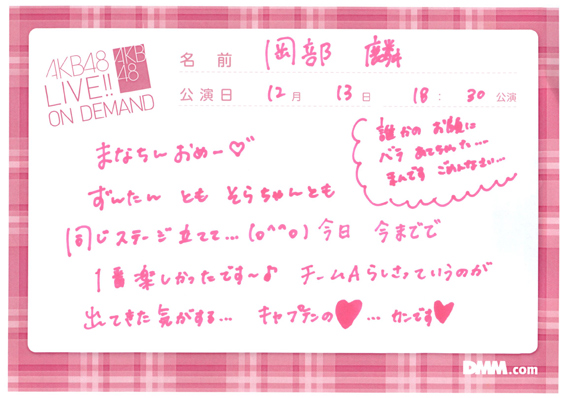 AKB48
LIVE!!
ON DEMAND
AKB
48
名前 岡部 麟
公演日 12月 13日 18:30公演
誰かの お顔に
バラ あてちゃった...
まんです ごめんなさい...
まなちんおめー♡
ずんたん とも そらちゃんとも
同じステージ立てて...(o^^o) 今日 今までで
1番楽しかったです〜♪ チームAらしさっていうのが
出てきた気がする... キャプテンの♥... カンです♥
DMM.com